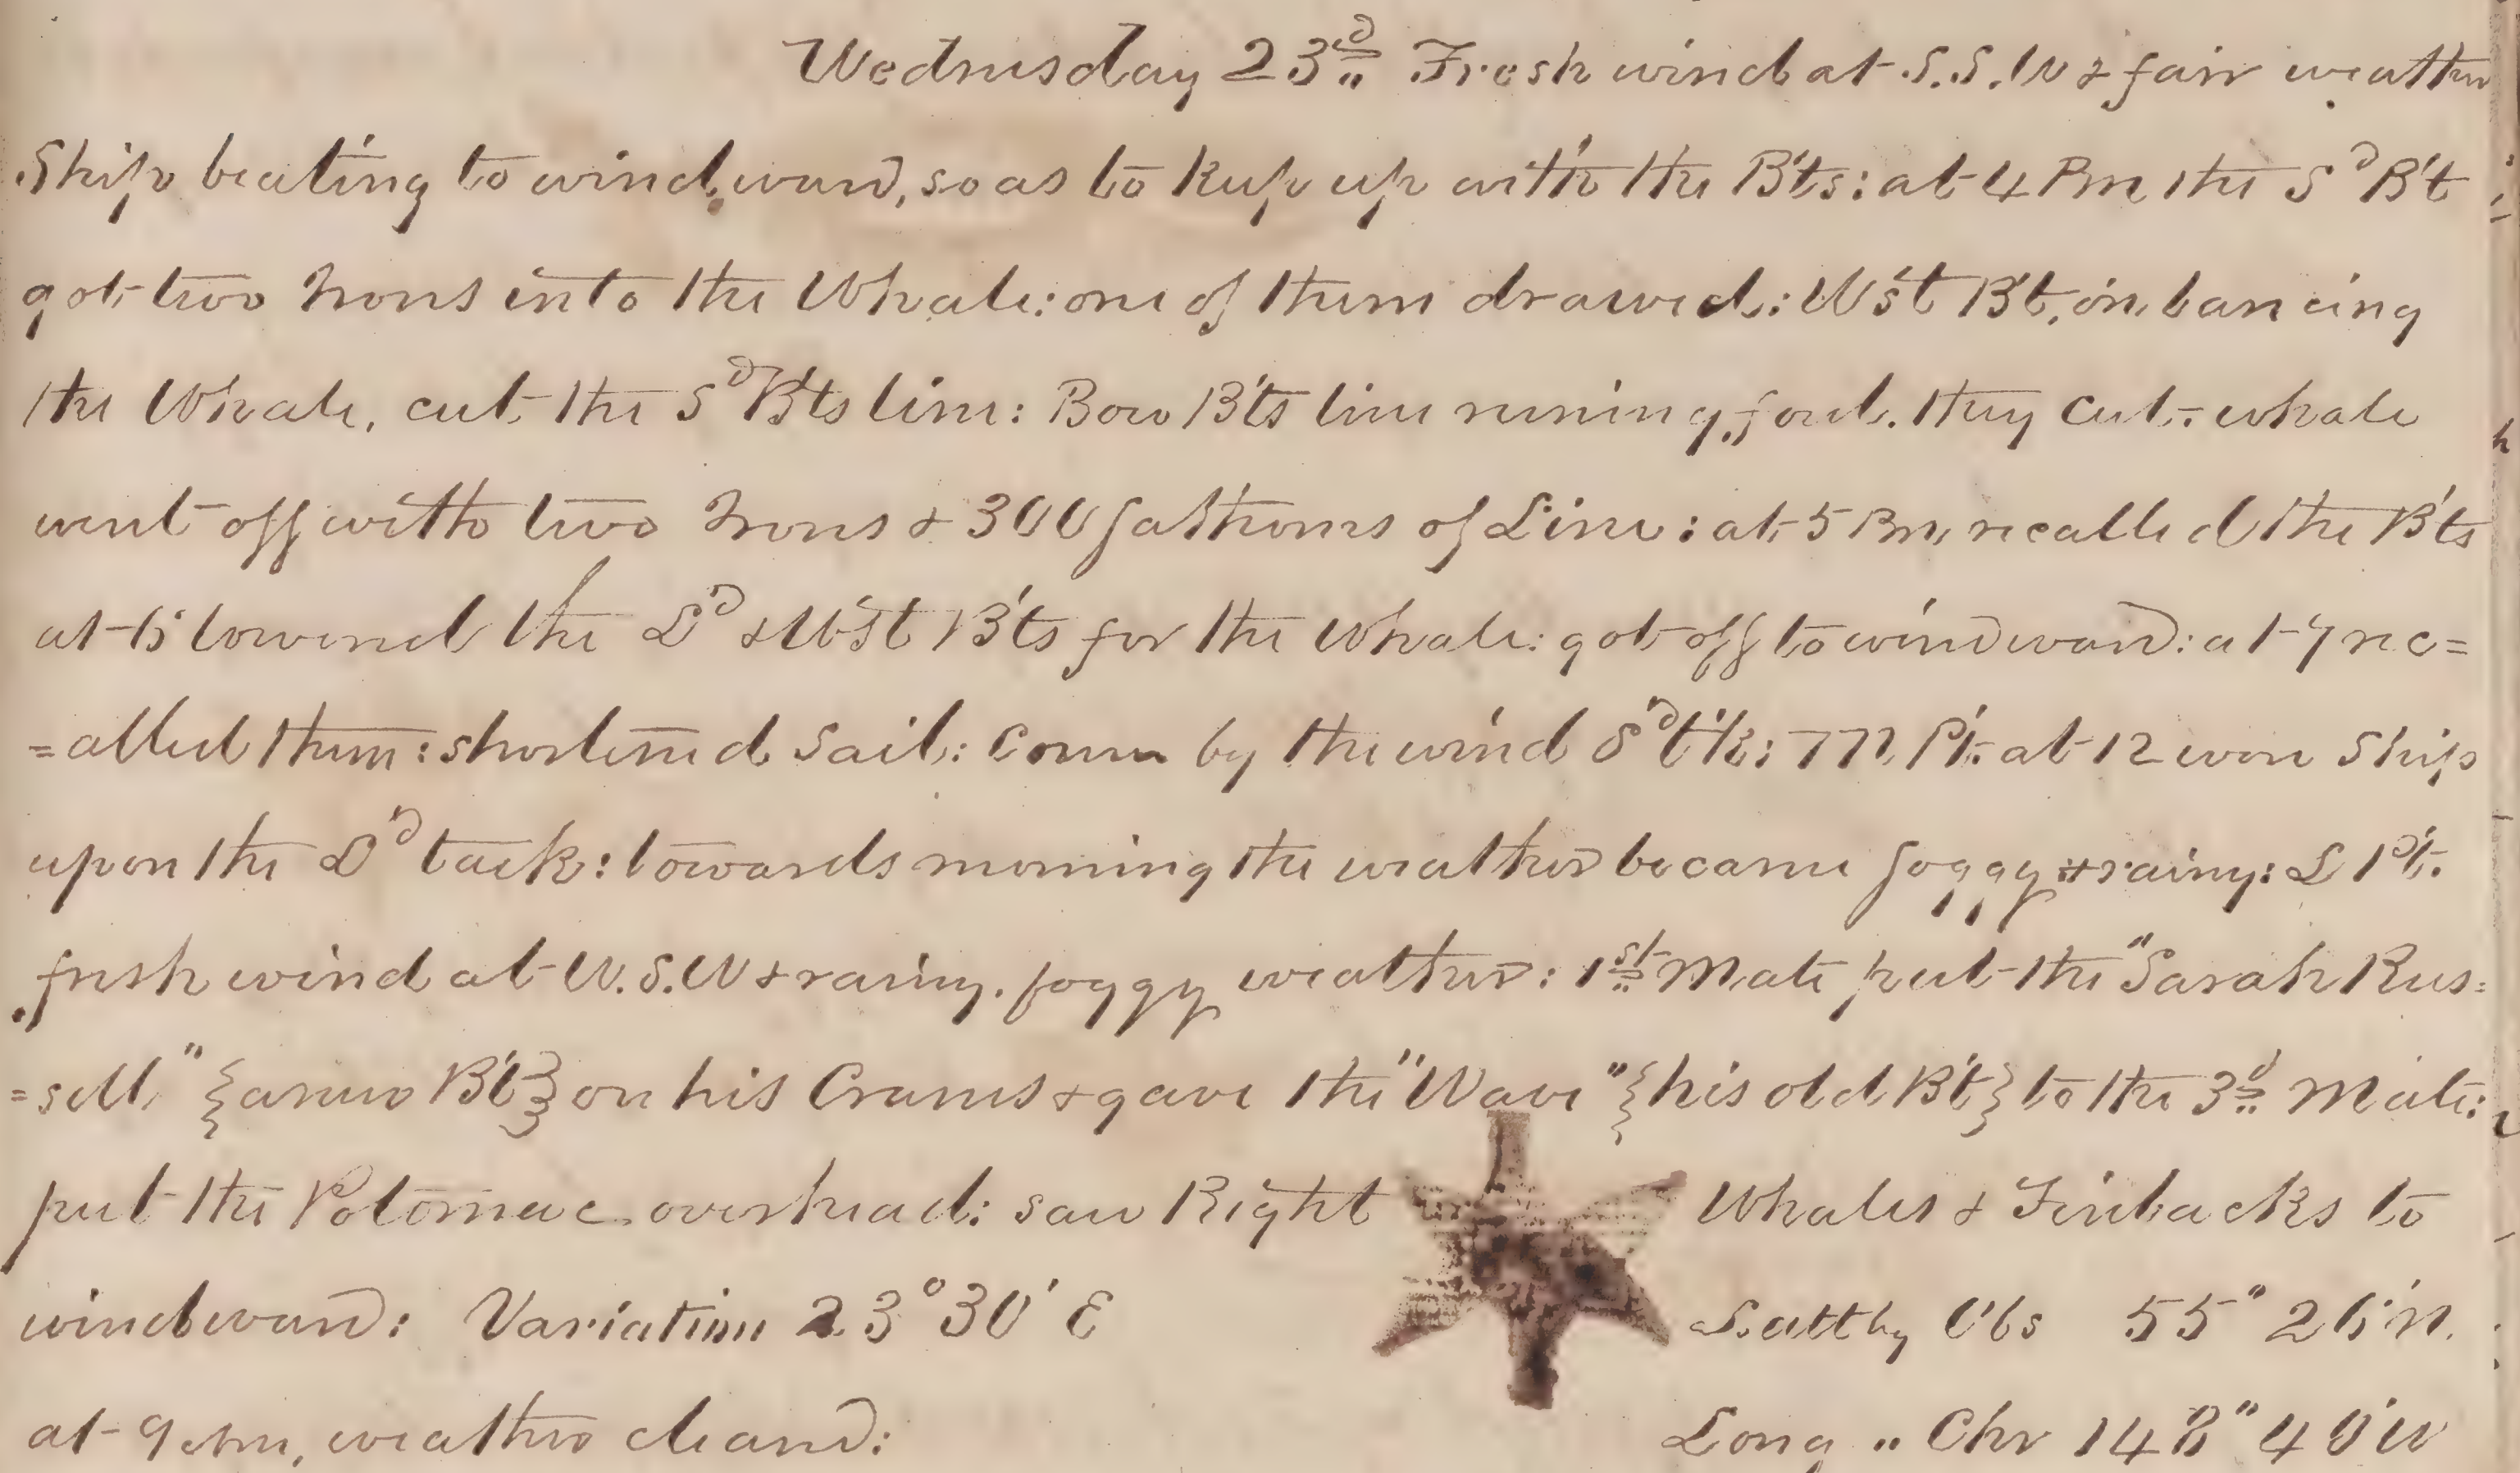 Wednesday 23d Fresh wind at S.S.W & fair weather
Ship beating to windward, so as to keep up with the B'ts: at 4 Pm the SdB't
got two Irons into the Whale: one of them drawed: W'st B't, in lancing
the Whale, cut the SdB'ts line: Bow B'ts line runing foul. they cut- whale
went off with two Irons & 300 fathoms of Line: at 5 Pm, recalled the B'ts
at 6 lowered the Ld & W'st B'ts for the Whale: got off to windward: at 7 rec=
=alled them: shortened Sail: Came by the wind Sd t'k: M P't. at 12 wore Ship
upon the Ld tack: towards morning the weather became foggy & rainy: L P't.
fresh wind at W.S.W & rainy. foggy weather: 1st Mate put the "Sarah Rus=
=sell," {a new B't} on his Cranes & gave the "Wave" {his old B't} to the 3d Mate:
put the Potomac overhead: saw Right Whales & Finbacks to
windward: Variation 23° 30' E Latt by Obs 55° 26' N.
at 9 Am, weather cleard: Long " Chr 148° 40' W